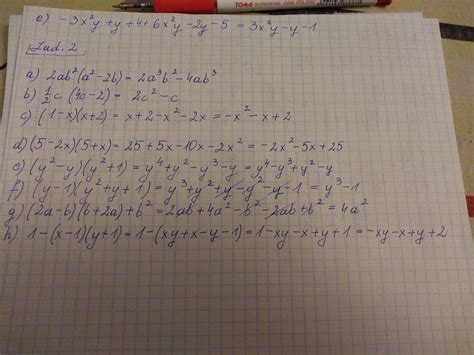 TOMA
e) -3x²y + y + 4 + 6x²y - 2y - 5 = 3x²y - y - 1
Zad. 2.
a) 2ab² (a² - 2b) = 2a³b² - 4ab³
b) ½c (4c - 2) = 2c² - c
c) (1 - x)(x + 2) = x + 2 - x² - 2x = -x² - x + 2
d) (5 - 2x)(5 + x) = 25 + 5x - 10x - 2x² = -2x² - 5x + 25
e) (y² - y)(y² + 1) = y⁴ + y² - y³ - y = y⁴ - y³ + y² - y
f) (y - 1)(y² + y + 1) = y³ + y² + y - y² - y - 1 = y³ - 1
g) (2a - b)(b + 2a) + b² = 2ab + 4a² - b² - 2ab + b² = 4a²
h) 1 - (x - 1)(y + 1) = 1 - (xy + x - y - 1) = 1 - xy - x + y + 1 = -xy - x + y + 2